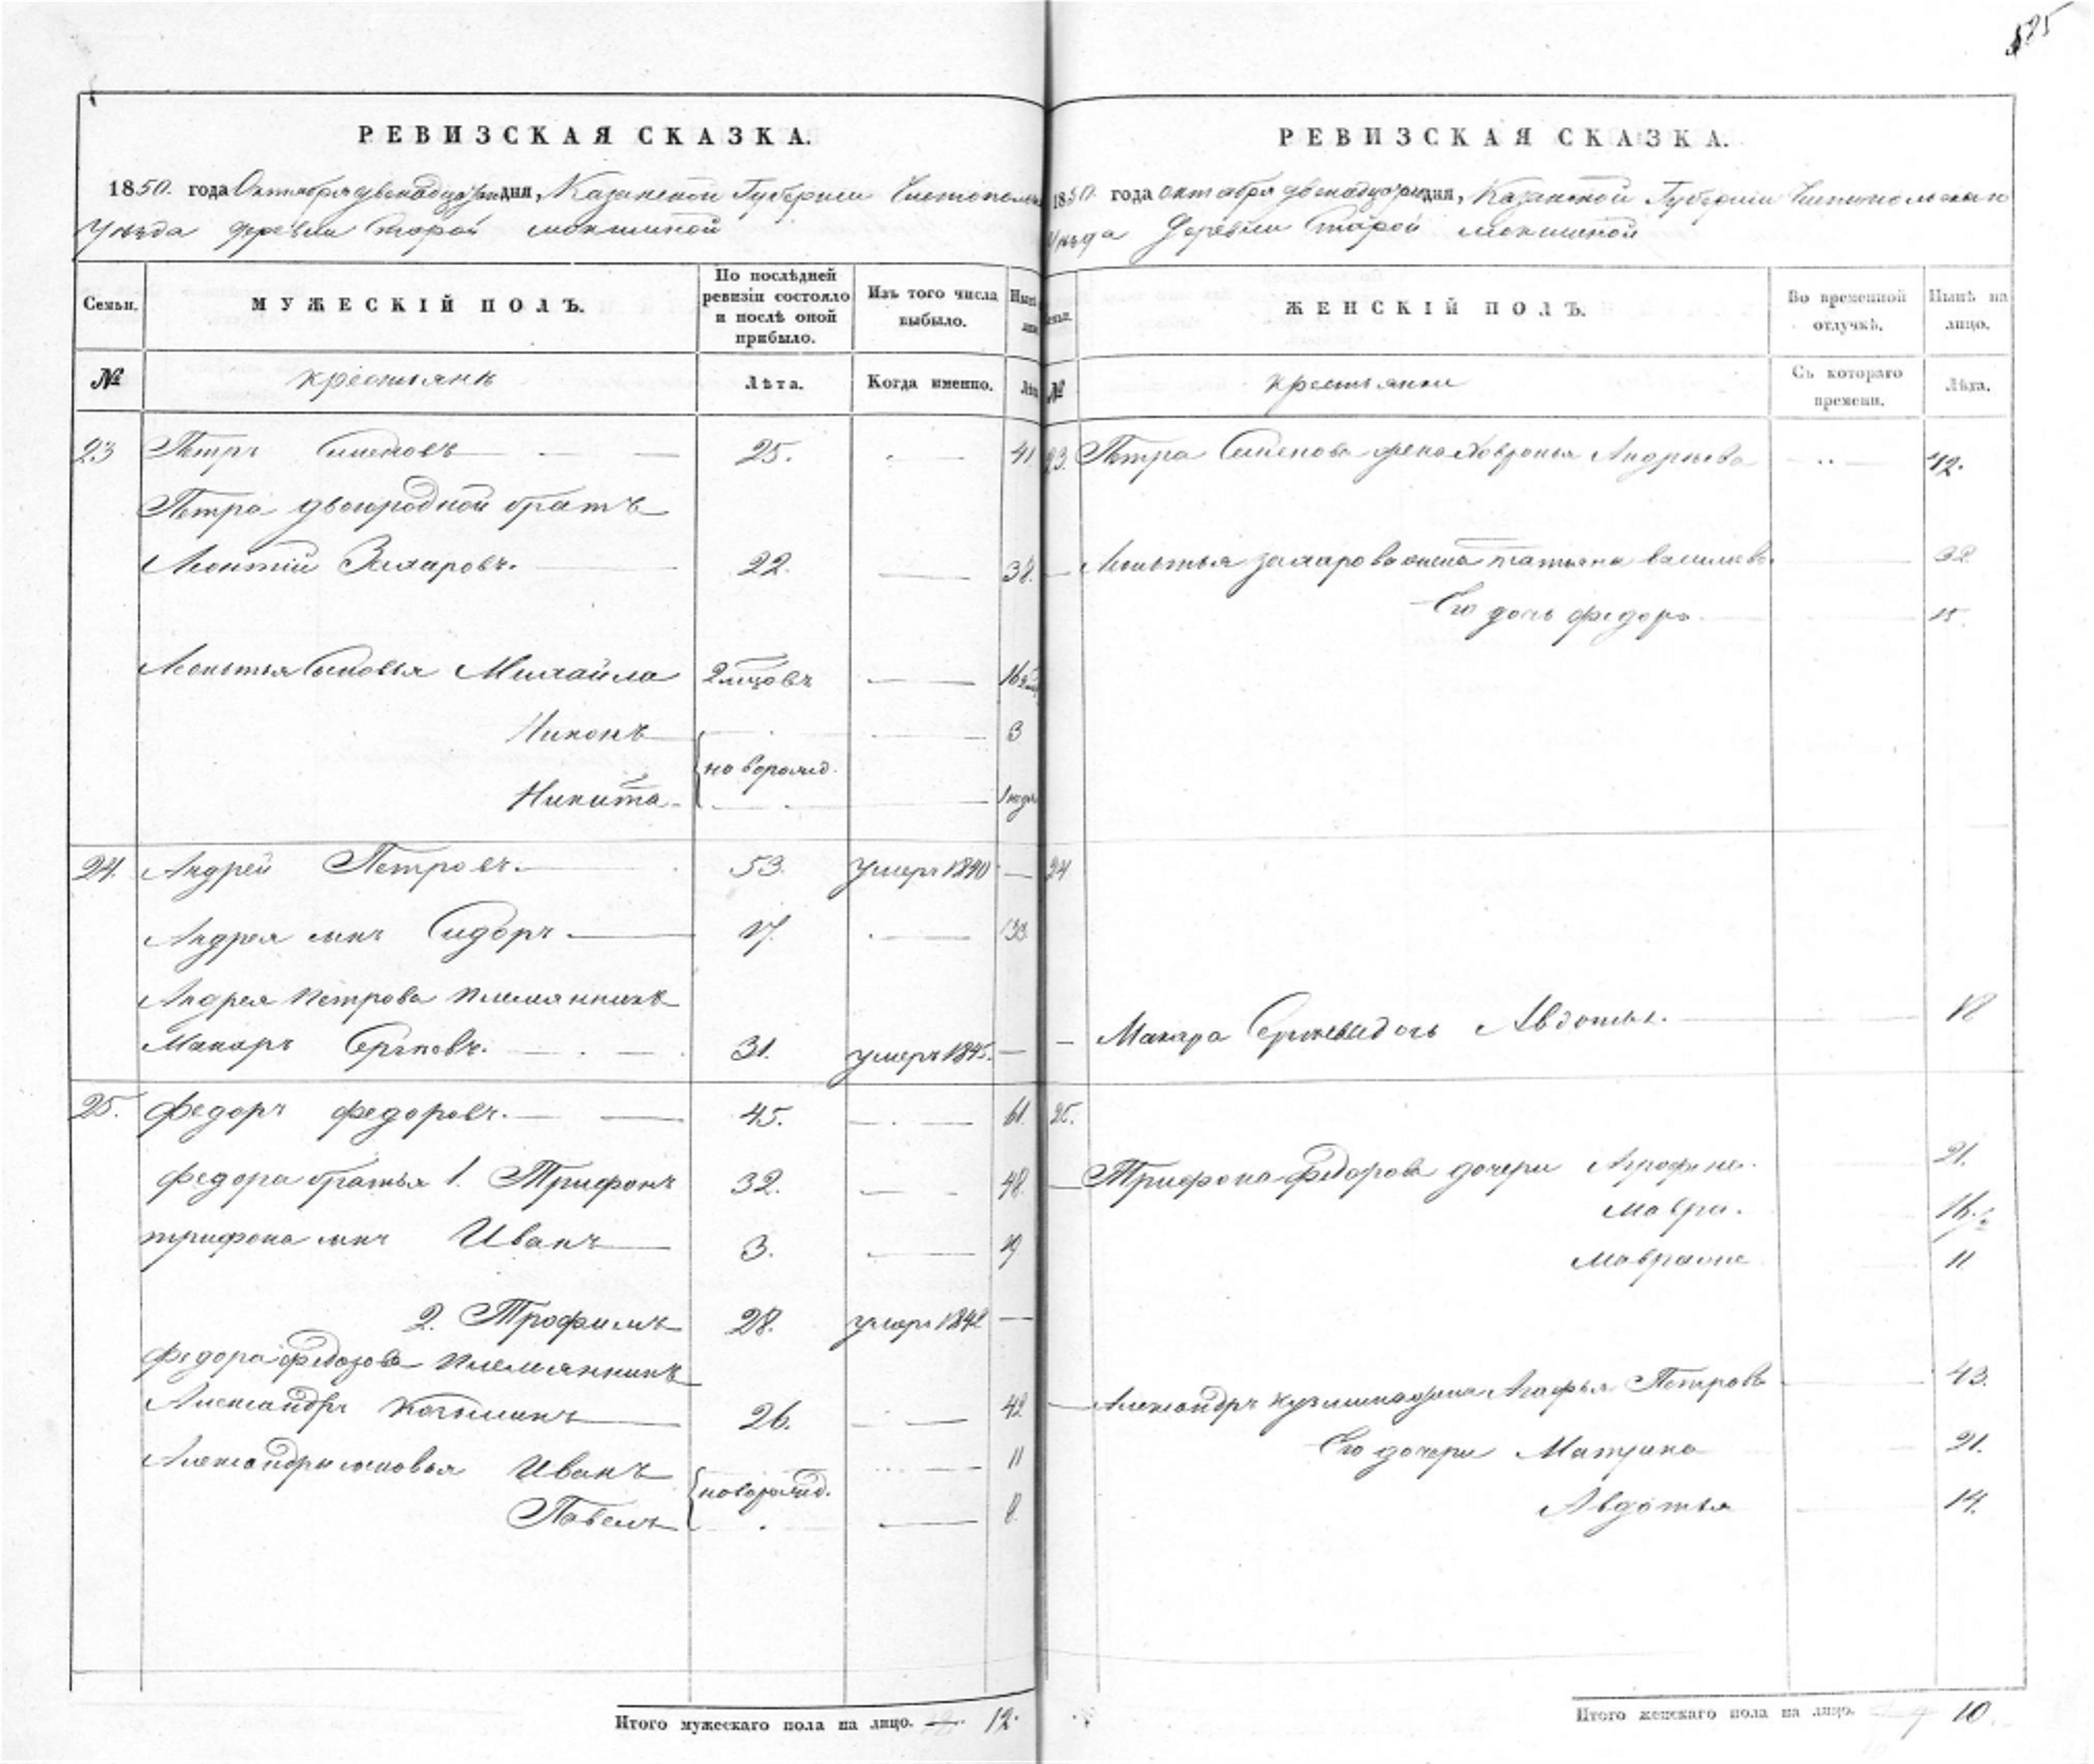 125
РЕВИЗСКАЯ СКАЗКА.
1850. года Октября двенадцатаго дня, Казанской Губернии Чистополь
Уезда деревни Старой мокшиной
Семьи.
МУЖЕСКІЙ ПОЛЪ.
По послѣдней ревизіи состояло и послѣ оной прибыло.
Изъ того числа выбыло.
№
крестьянѣ
Лѣта.
Когда именно.
23 Петръ Семеновъ 25. 41
Петра двоюродной братъ
Леонтій Захаровъ. 22. 38.
Леонтья Сыновья Михайла 2 мѣцовъ 16
Никонъ 3
новорожд.
Никита 1 года
24. Андрей Петровъ. 53. умеръ 1840 —
Андрея сынъ Сидоръ 17. 33
Андрея Петрова племянникъ
Макаръ Сергѣевъ. 31. умеръ 1845. —
25. Федоръ федоровъ. 45. 61.
федора братья 1. Трифонъ 32. 48.
трифона сынъ Иванъ 3. 19
2. Трофимъ 28. умеръ 1842 —
Федора федорова племянникъ
Александръ Козьминъ 26. 42
Александры сыновья Иванъ 11
новорожд.
Павелъ 8.
Итого мужескаго пола на лицо. 12.
РЕВИЗСКАЯ СКАЗКА.
1850. года октября двенадцатаго дня, Казанской Губерніи Чистопольскаго
Уѣзда Деревни Старой мокшиной
ЖЕНСКІЙ ПОЛЪ.
Во временной отлучкѣ.
Нынѣ на лицо.
№
крестьянки
Съ котораго времени.
Лѣта.
23. Петра Семенова жена Ховронья Андреева 42.
Леонтья захарова жена татьяна василева 32
Его дочь федора 15.
24
Макара Сергѣева дочь Авдотья. 18
25.
Трифона Федорова дочери Агрофина. 21.
Мавра. 16.
Мавра 11
Александръ кузмина жена Агафья Петрова 43.
Его дочери Матрина 21.
Авдотья 14.
Итого женскаго пола на лицо. 10.